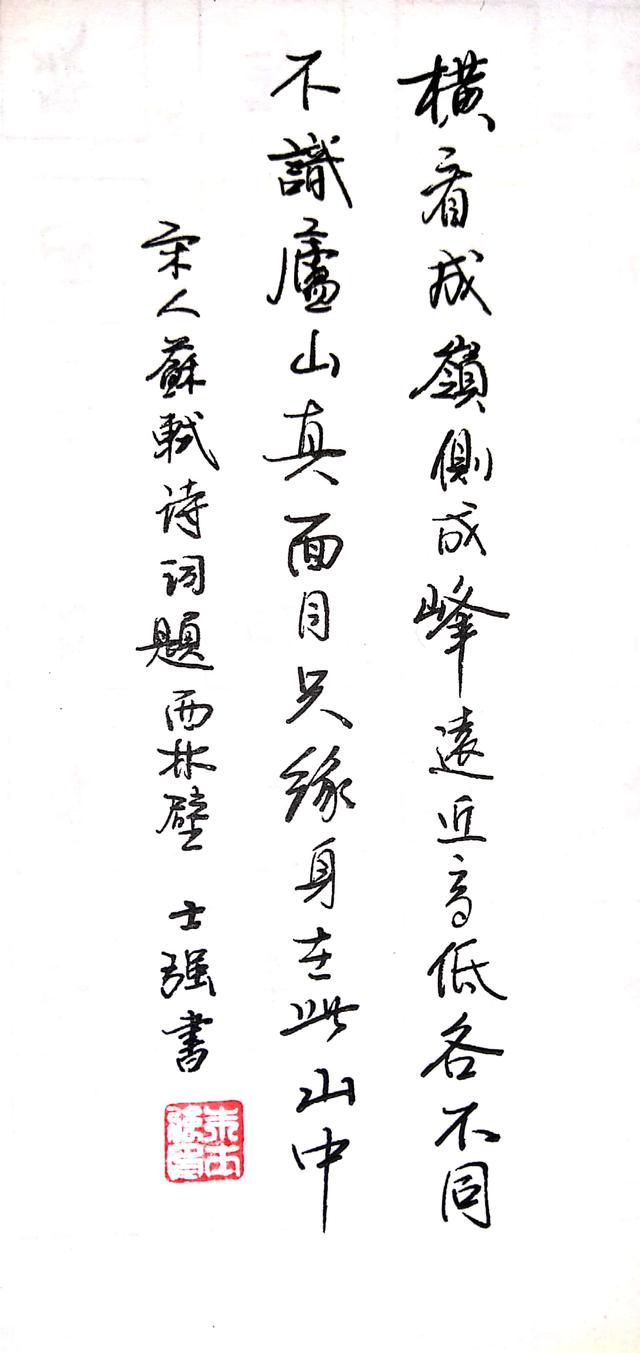 横看成嶺側成峰遠近高低各不同
不識廬山真面目只緣身在此山中
宋人蘇軾诗词題西林壁 士强書